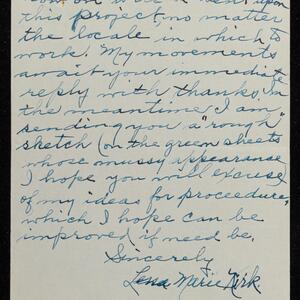 this project, no matter
the locale in which to
work. My movements
await your immediate
reply with thanks. In
the meantime I am
sending you a "rough"
sketch (on the green sheets
whose mussy appearance
I hope you will excuse)
of my ideas for proceedure,
which I hope can be
improved if need be.
Sincerely
Lena Marie Kirk